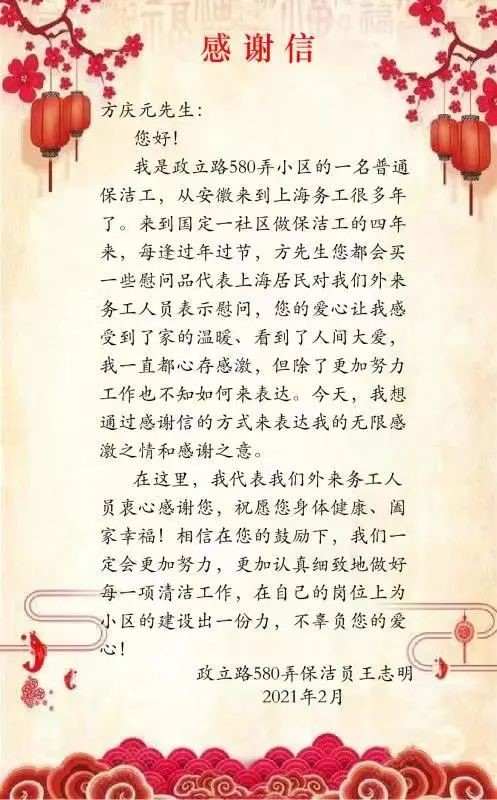 感谢信
方庆元先生：
您好！
我是政立路580弄小区的一名普通
保洁工，从安徽来到上海务工很多年
了。来到国定一社区做保洁工的四年
来，每逢过年过节，方先生您都会买
一些慰问品代表上海居民对我们外来
务工人员表示慰问，您的爱心让我感
受到了家的温暖、看到了人间大爱，
我一直都心存感激，但除了更加努力
工作也不知如何来表达。今天，我想
通过感谢信的方式来表达我的无限感
激之情和感谢之意。
在这里，我代表我们外来务工人
员衷心感谢您，祝愿您身体健康、阖
家幸福！相信在您的鼓励下，我们一
定会更加努力，更加认真细致地做好
每一项清洁工作，在自己的岗位上为
小区的建设出一份力，不辜负您的爱
心！
政立路580弄保洁员王志明
2021年2月